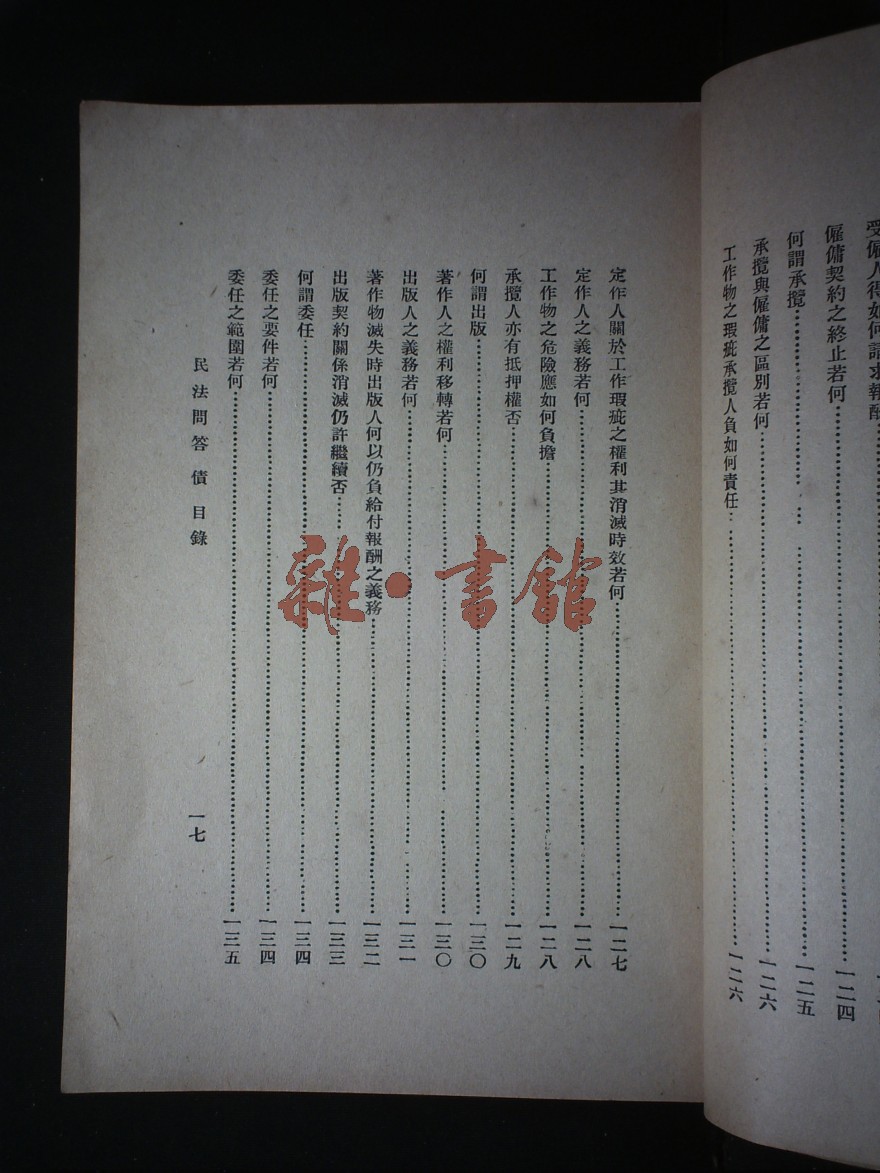 受僱人得如何請求報酬
僱傭契約之終止若何……一二四
何謂承攬……一二五
承攬與僱傭之區別若何……一二六
工作物之瑕疵承攬人負如何責任……一二六
定作人關於工作瑕疵之權利其消滅時效若何……一二七
定作人之義務若何……一二八
工作物之危險應如何負擔……一二八
承攬人亦有抵押權否……一二九
何謂出版……一三〇
著作人之權利移轉若何……一三〇
出版人之義務若何……一三一
著作物滅失時出版人何以仍負給付報酬之義務……一三二
出版契約關係消滅仍許繼續否……一三三
何謂委任……一三四
委任之要件若何……一三四
委任之範圍若何……一三五
民法問答 債 目錄
一七
雜·書館